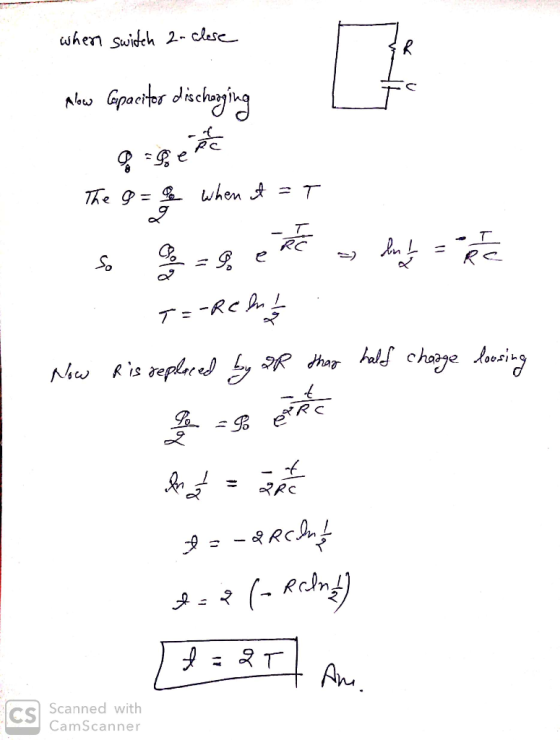 when switch 2- close
R
C
Now Capacitor discharging
q = q₀ e^(-t/RC)
The q = q₀/2 when t = T
So q₀/2 = q₀ e^(-T/RC) ⇒ ln 1/2 = -T/RC
T = -RC ln 1/2
Now R is replaced by 2R than half charge loosing
q₀/2 = q₀ e^(-t/2RC)
ln 1/2 = -t/2RC
t = -2RC ln 1/2
t = 2 (-RC ln 1/2)
t = 2T Ans.
CS Scanned with
CamScanner